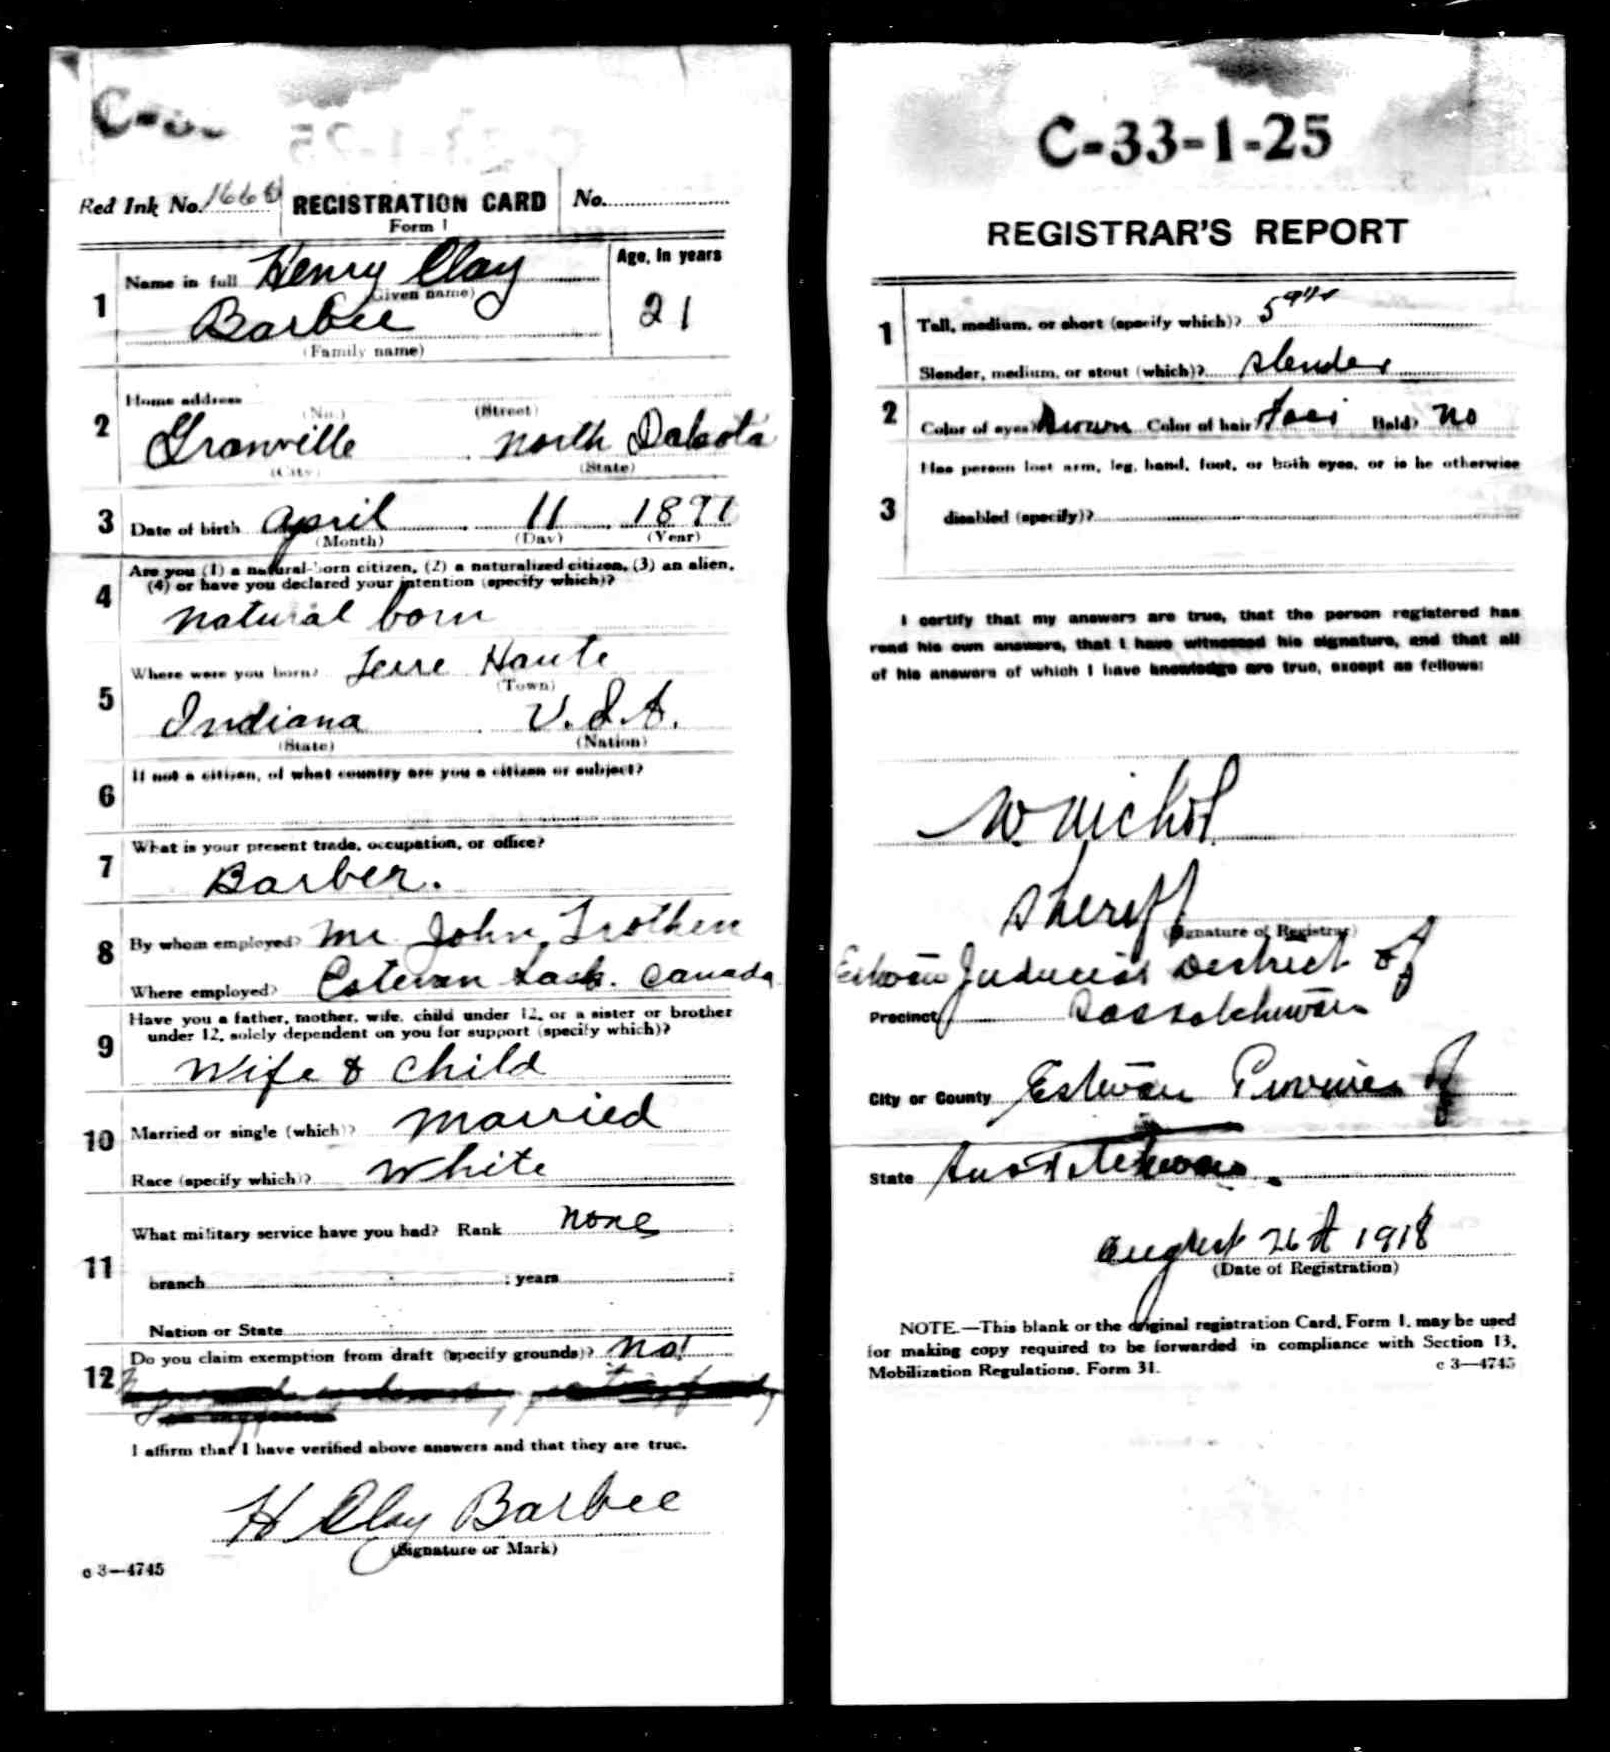 C-33-1-25
Red Ink No. 1668 REGISTRATION CARD No.
Form 1
1 Name in full Henry Clay Age, in years
(Given name)
Barbee 21
(Family name)
2 Home address
(No.) (Street)
Granville North Dakota
(City) (State)
3 Date of birth April 11 1897
(Month) (Day) (Year)
4 Are you (1) a natural-born citizen, (2) a naturalized citizen, (3) an alien,
(4) or have you declared your intention (specify which)?
natural born
5 Where were you born? Terre Haute
(Town)
Indiana U.S.A.
(State) (Nation)
6 If not a citizen, of what country are you a citizen or subject?
7 What is your present trade, occupation, or office?
Barber.
8 By whom employed? Mr John Trothen
Where employed? Estevan Sask. Canada
9 Have you a father, mother, wife, child under 12, or a sister or brother
under 12, solely dependent on you for support (specify which)?
Wife & Child
10 Married or single (which)? Married
Race (specify which)? White
11 What military service have you had? Rank none ;
branch ; years ;
Nation or State
12 Do you claim exemption from draft (specify grounds)? No!
I affirm that I have verified above answers and that they are true.
H Clay Barbee
(Signature or Mark)
c 3—4745
C-33-1-25
REGISTRAR'S REPORT
1 Tall, medium, or short (specify which)?
Slender, medium, or stout (which)? Slender
2 Color of eyes? Brown Color of hair Bald? No
3 Has person lost arm, leg, hand, foot, or both eyes, or is he otherwise
disabled (specify)?
I certify that my answers are true, that the person registered has
read his own answers, that I have witnessed his signature, and that all
of his answers of which I have knowledge are true, except as follows:
W. Nichol
Sheriff
(Signature of Registrar)
Estevan Judicial District of
Precinct Saskatchewan
City or County Estevan Province of
State Saskatchewan.
August 26th 1918
(Date of Registration)
NOTE.—This blank or the original registration Card, Form 1, may be used
for making copy required to be forwarded in compliance with Section 13,
Mobilization Regulations, Form 31. c 3—4745